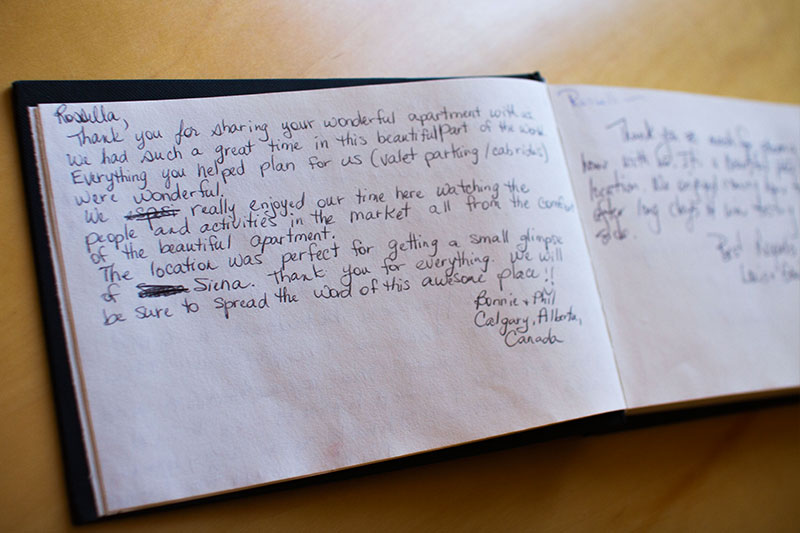 Rossella,
Thank you for sharing your wonderful apartment with us
We had such a great time in this beautiful Part of the World
Everything you helped plan for us (valet parking/cab rides)
were wonderful.
We really enjoyed our time here watching the
people and activities in the market all from the comfort
of the beautiful apartment.
The location was perfect for getting a small glimpse
of Siena. Thank you for everything. We will
be sure to spread the word of this awesome place!!
Bonnie + Phil
Calgary, Alberta,
Canada
Thank you so much for
home with us. It's a beautiful
location. We enjoyed
after long days of wine tasting
Best Regards